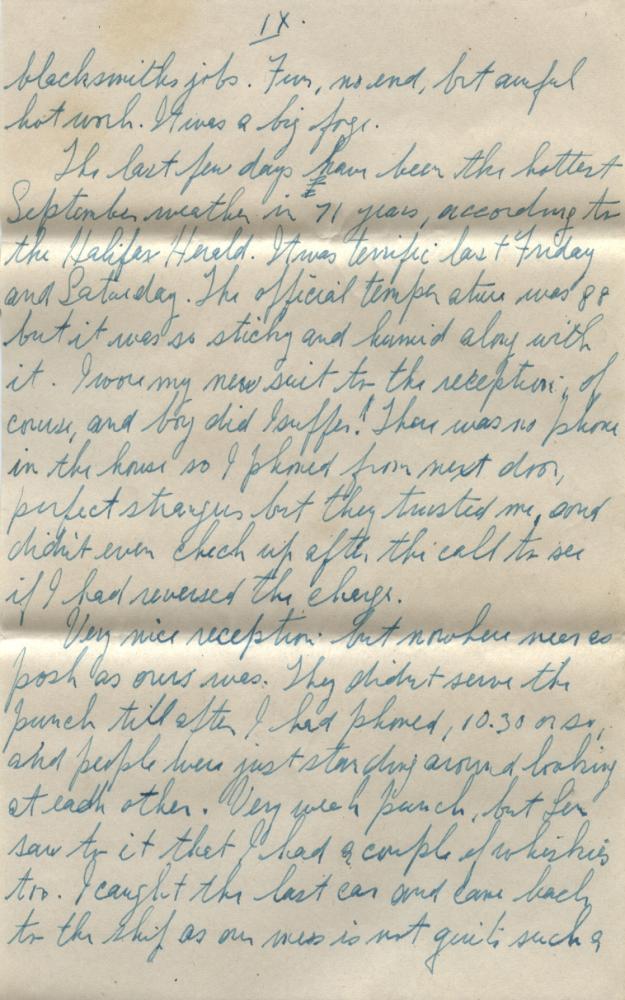 IX.
blacksmiths jobs. Fun, no end, but awful
hot work. It was a big forge.
The last few days have been the hottest
September weather in 71 years, according to
the Halifax Herald. It was terrific last Friday
and Saturday. The official temperature was 88
but it was so sticky and humid along with
it. I wore my new suit to the reception, of
course, and boy did I suffer! There was no phone
in the house so I phoned from next door,
perfect strangers but they trusted me, and
didn't even check up after the call to see
if I had reversed the charge.
Very nice reception but nowhere near as
posh as ours was. They didn't serve the
punch till after I had phoned, 10.30 or so,
and people were just standing around looking
at each other. Very weak punch, but Len
saw to it that I had a couple of whiskies
too. I caught the last car and came back
to the ship as our mess is not quite such a